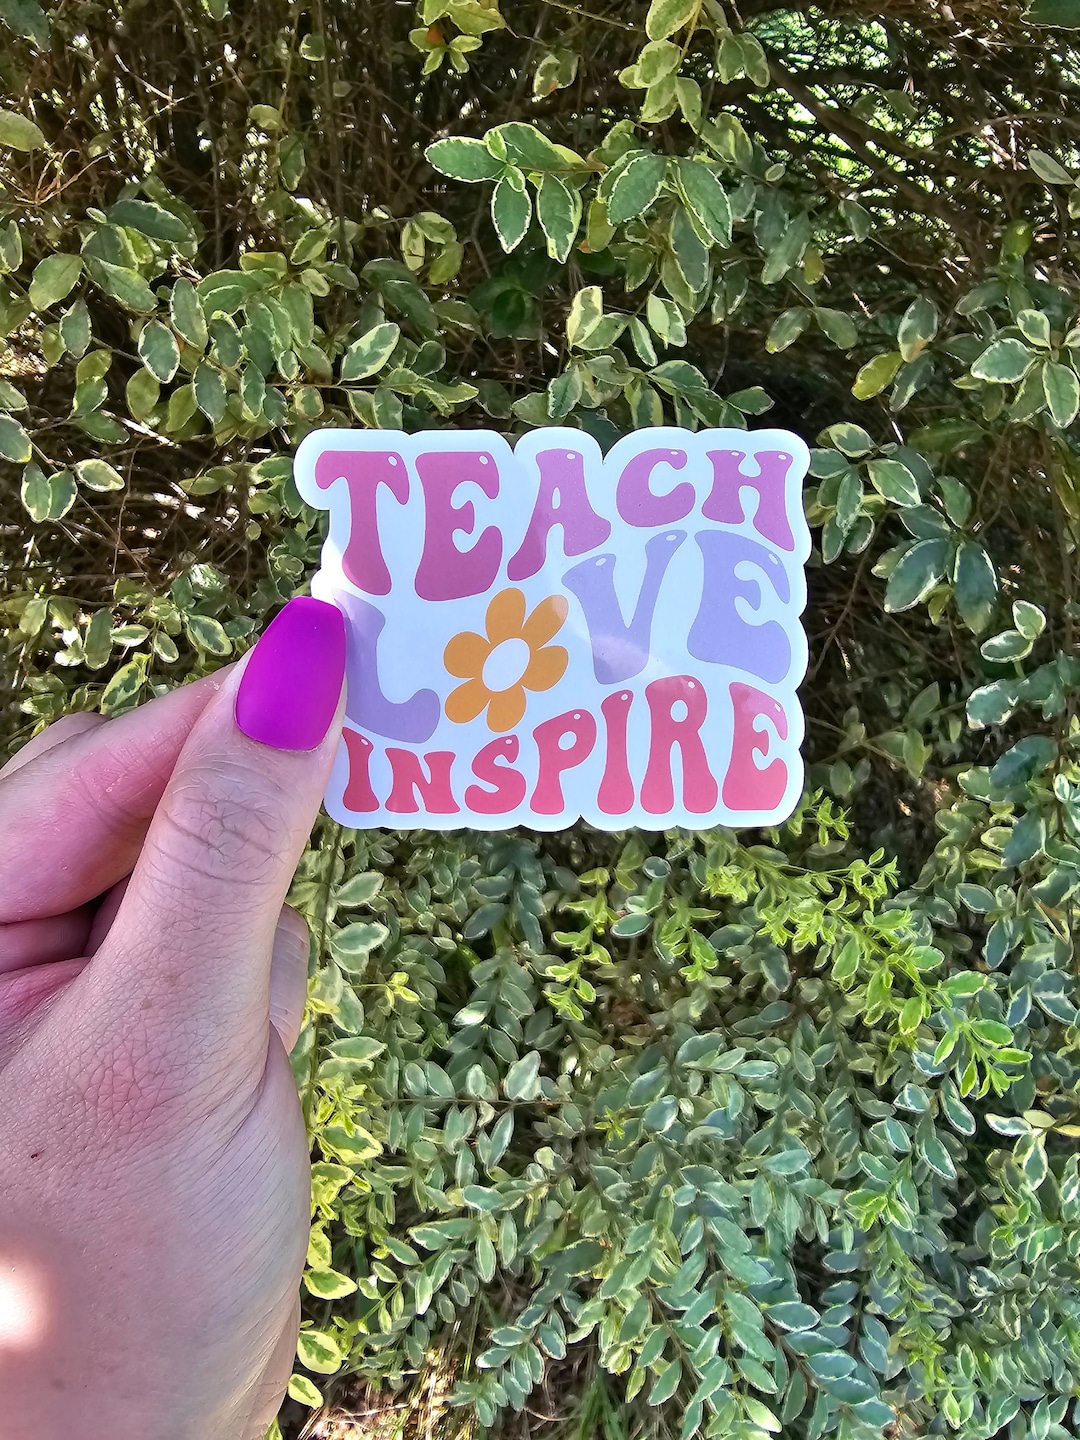 TEACH
LOVE
INSPIRE